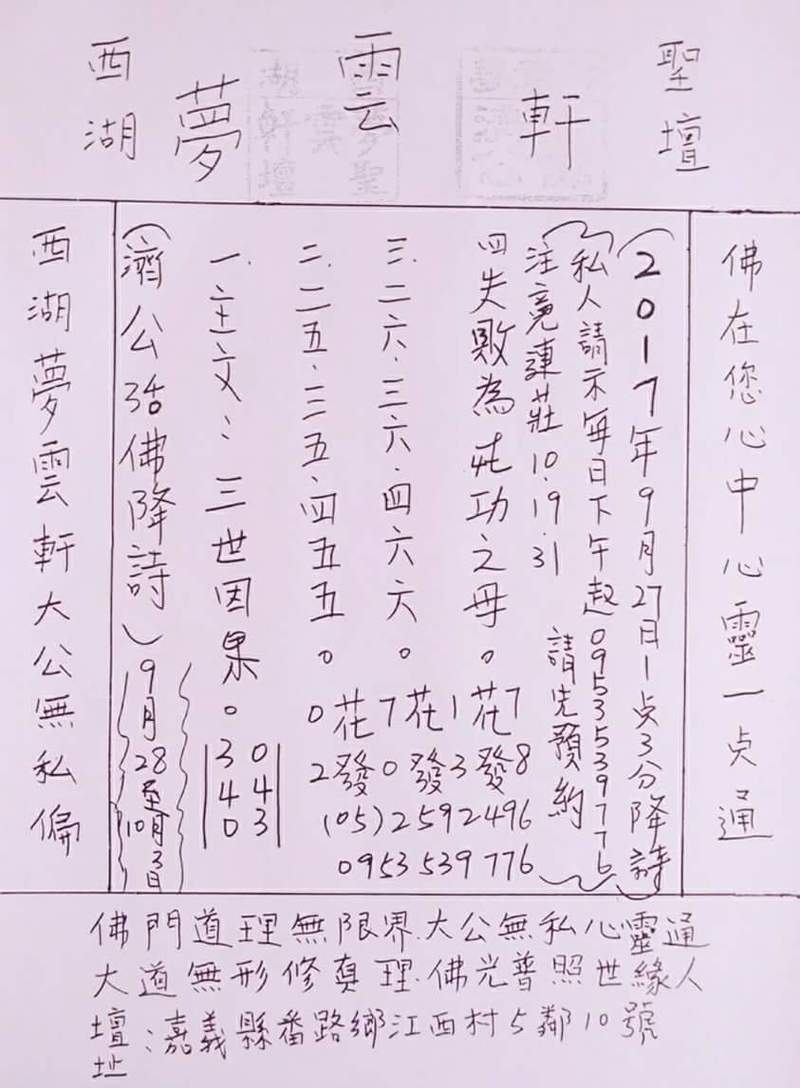 西湖夢雲軒聖壇
西湖夢雲軒大公無私偏
(濟公活佛降詩)9月28至10月3日
一.主文:三世因果。
340
043
二.二五.三五.四五五。
三.二六.三六.四六六。
四失敗為成功之母。
0花7花1花7
2發0發3發8
(05)2592496
0953539776
注意連莊10.19.31 請先預約
私人請示每日下午起0953539776
(2017年9月27日1点3分降詩)
佛在您心中心靈一点通
佛門道理無限界.大公無私心靈通
大道無形修真理.佛光普照世緣人
壇址:嘉義縣番路鄉江西村5鄰10號